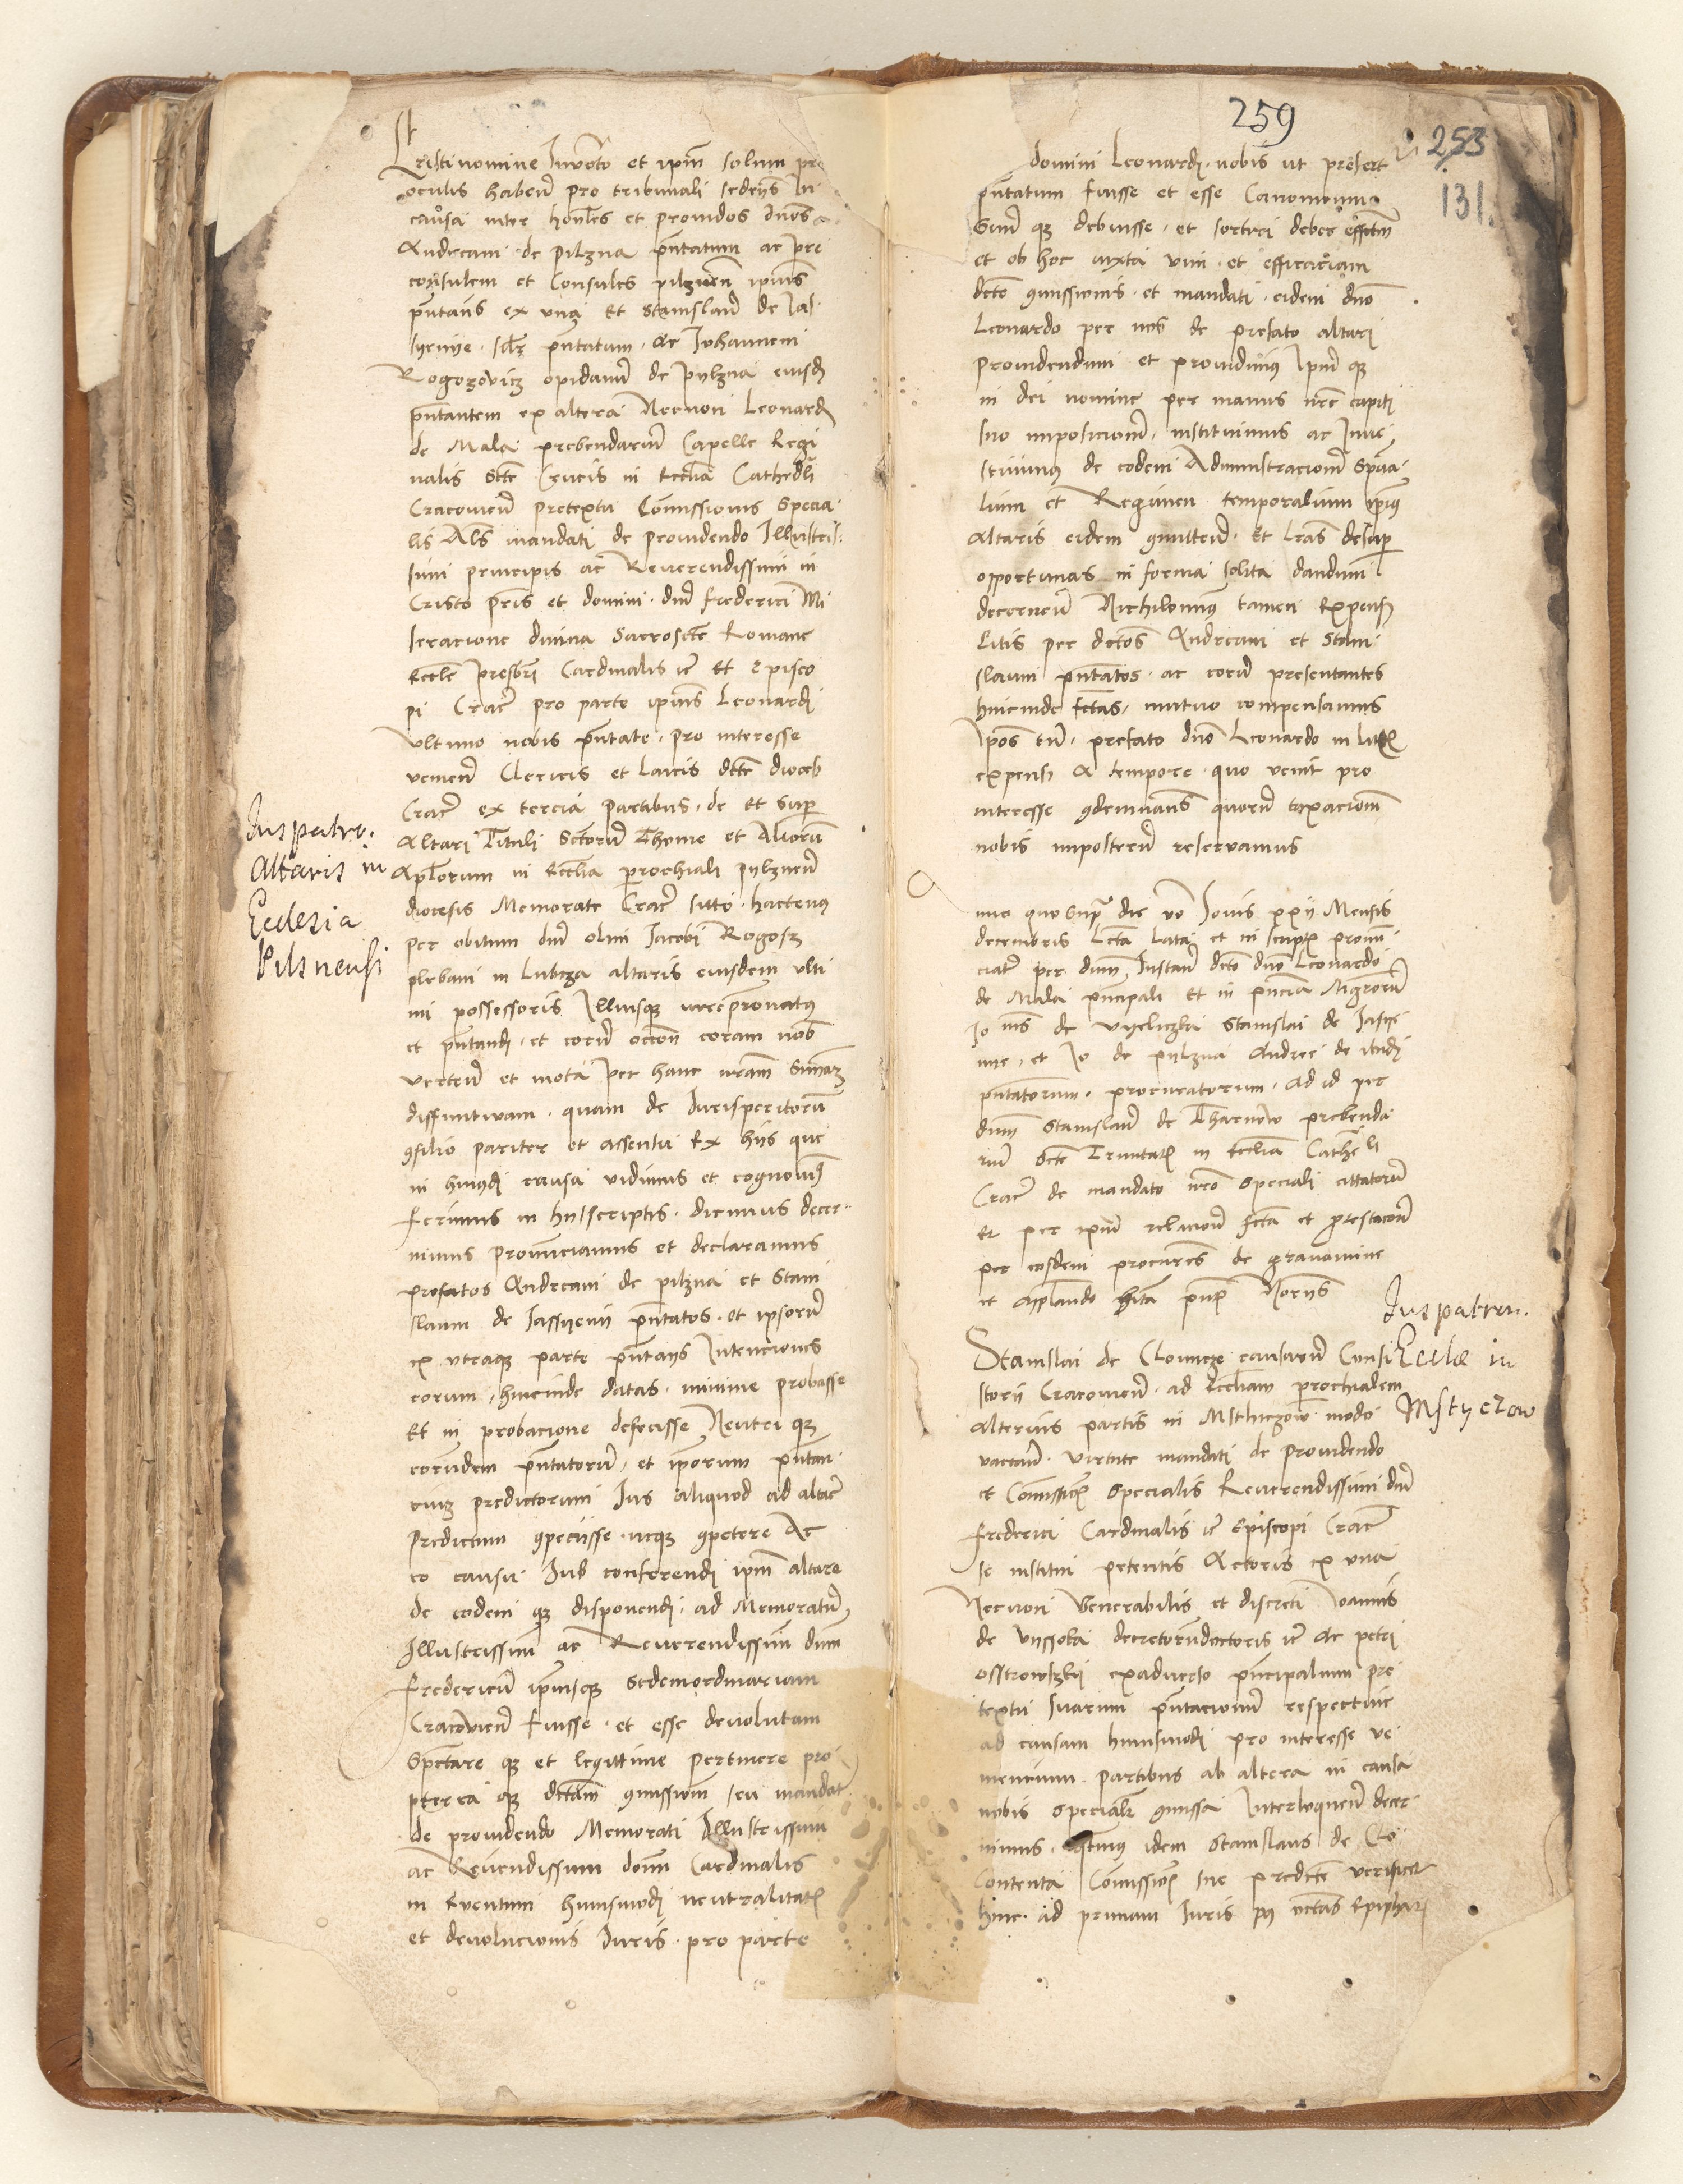 Cristi nomine Invoto et ipm solum pre
oculis habens pro tribunali sedens In
causa inter honles et providos dnos
Andream de pilzna pntatum ac pre
consulem et Consules pilznen ipius
pntans ex una Et Stanislaum de Jas
syenye pntatum ac Johannem
Rogozovicz opidanum de pylzna eiusdem
pntantem ex altera Necnon Leonard
de Mala prebendarium Capelle Regi
nalis Scte Crucis in Ecclia Cathedli
Cracovien pretextu Comissionis Specia
lis Als mandati de providendo Illustris
simi principis ac Reverendissimi in
Cristo pris et domini dni frederici Mi
seracione divina Sacroscte Romane
Eccle presbri Cardinalis et Episco
pi Crac pro parte ipius Leonardi
ultimo nobis pntate pro interesse
venien Clericis et Laicis dcte dioces
Crac ex tercia partibus de et Super
Altari Tituli Sctorum Thome et Aliorum
Aplorum in Ecclia parochiali pylznen
diocesis Memorate Crac sito hactenus
per obitum dni olim Jacobi Rogosz
plebani in Lubcza altaris eiusdem ulti
mi possessoris Illiusque iurepronatus
et pntandi et eorum occon coram nobis
verten et mota per hanc nram Sniam
diffinitivam quam de Jurisperitorum
9silio pariter et assensu Ex hiis que
in hmoi causa vidimus et cognovimus
ferimus in hys scriptis dicimus decer
nimus pronunciamus et declaramus
prefatos Andream de pilzna et Stani
slaum de Jassyenii pntatos et ipsorum
ex utraque parte pntans Intenciones
eorum hincinde datas minime probasse
Et in probacione defecisse Neutri que
eorundem pntatorum et ipsorum pntan
cium predictorum Ius aliquod ad altare
predictum 9petiisse neque 9petere Ac
eo causa Ius conferendi ipm altare
de eodem que disponendi ad Memoratum
Illustrissimum ac Reverendissimum dnm
fredericum ipiusque Sedem ordinariam
Cracovien fuisse et esse devolutam
Spectare que et legittime pertinere pro
pterea que dictam 9missionem seu mandat
de providendo Memorati Illustrissimi
ac Revendissimi domni Cardinalis
in Eventum huiusmodi neutralitatis
et devolucionis Iuris pro parte
Jus patro.
Altaris in
Ecclesia
Pilsnensi
259
253
131.
domini Leonardi nobis ut prefert
pntatum fuisse et esse Canonicum
Suum que debuisse et sortiri debere effectum
et ob hoc iuxta vim et efficaciam
dicte 9missionis et mandati eidem dno
Leonardo per nos de prefato altari
providendum et providimus Ipum que
in dei nomine per manus nre capiti
suo imposicionem instituimus ac Inve
stivimus de eodem Administracionem Spua
lium et Regimen temporalium ipius
altaris eidem 9mitten Et lras desuper
opportunas in forma solita dandum
decernen Nichilominus tamen Expensas
Litis per dictos Andream et Stani
slaum pntatos ac eorum presentantes
hincinde fctas mutuo compensamus
Ipos tn prefato dno Leonardo in litis
expensis A tempore quo venit pro
interesse 9demnans quorum taxacionem
nobis imposterum reservamus
nno quo Supra die vo Jovis xxij Mensis
decembris Lcta Lata et in scriptis pronun
ciata per dnm Instan dcto dno Leonardo
de Mala pncipali et in pncia Mgrorum
Jo nis de vyeliczka Stanislai de Jassye
nye et Jo de pylzna Andree de
pntatorum procuratorum ad id per
dnm Stanislaum de Tharnow prebenda
rium Scte Trinitatis in Ecclia Cathe li
Crac de mandato nro Speciali citatorum
et per ipum relacionem fcta et protestacione
per eosdem procures de gravamine
et applando hita pntibus Noriis
Jus patron.
Ecclae in
Mstyczow
Stanislai de Clonicze causarum Consi
storii Cracovien ad Eccliam parochialem
Alterius partis in Msthiczow modo
vacantem virtute mandati de providendo
et Comissionis specialis Reverendissimi dni
frederici Cardinalis et Episcopi Crac
se institui petentis Actoris ex una
Necnon Venerabilis et discreti Joannis
de vyssoka decretorum doctoris ac petri
ossrowskii exadverso pncipalium pre
textu suarum pntacionum respective
ad causam huiusmodi pro interesse ve
niencium partibus ab altera in causa
nobis specialiter 9missa Interloquen decer
nimus quatenus idem Stanislaus de Clo
Contenta Comissionis sue predicte verificet
hinc ad primam Iuris post octavas Epiphanie